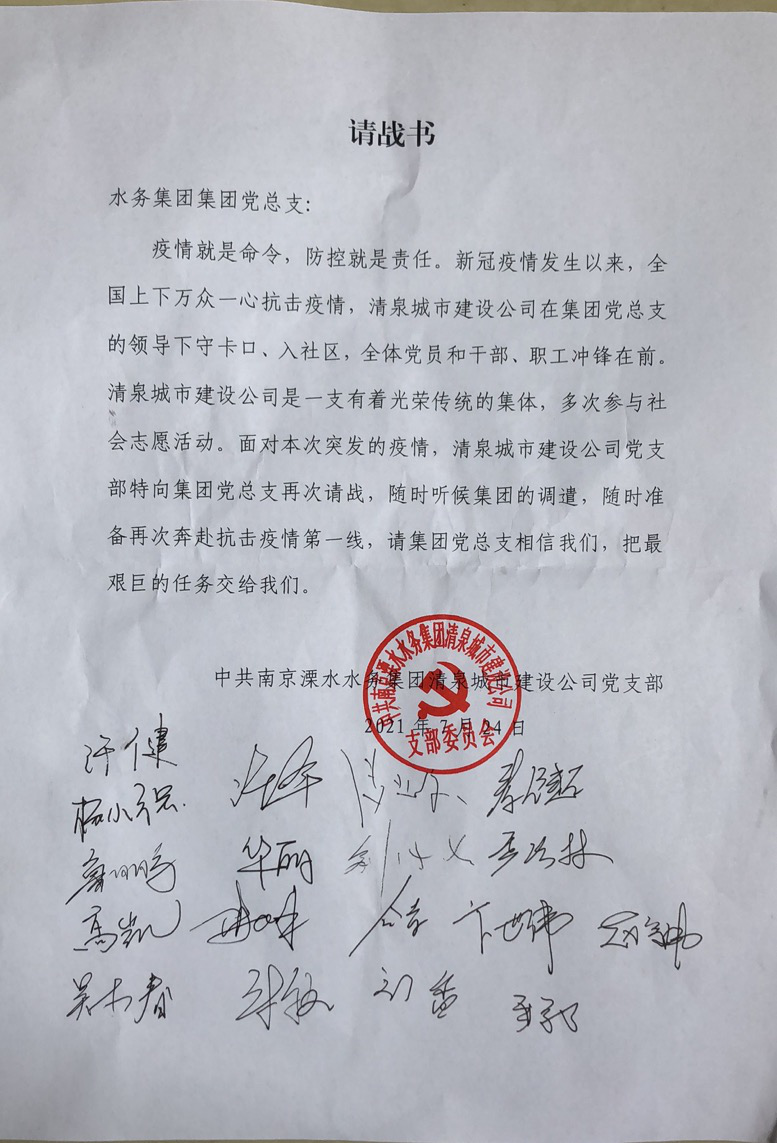 请战书
水务集团集团党总支：
疫情就是命令，防控就是责任。新冠疫情发生以来，全
国上下万众一心抗击疫情，清泉城市建设公司在集团党总支
的领导下守卡口、入社区，全体党员和干部、职工冲锋在前。
清泉城市建设公司是一支有着光荣传统的集体，多次参与社
会志愿活动。面对本次突发的疫情，清泉城市建设公司党支
部特向集团党总支再次请战，随时听候集团的调遣，随时准
备再次奔赴抗击疫情第一线，请集团党总支相信我们，把最
艰巨的任务交给我们。
中共南京溧水水务集团清泉城市建设公司党支部
2021 年 7 月 24 日
中共南京溧水水务集团清泉城市建设公司
支部委员会
杨小强
华丽
高凯 卞世伟
吴木春 张敏